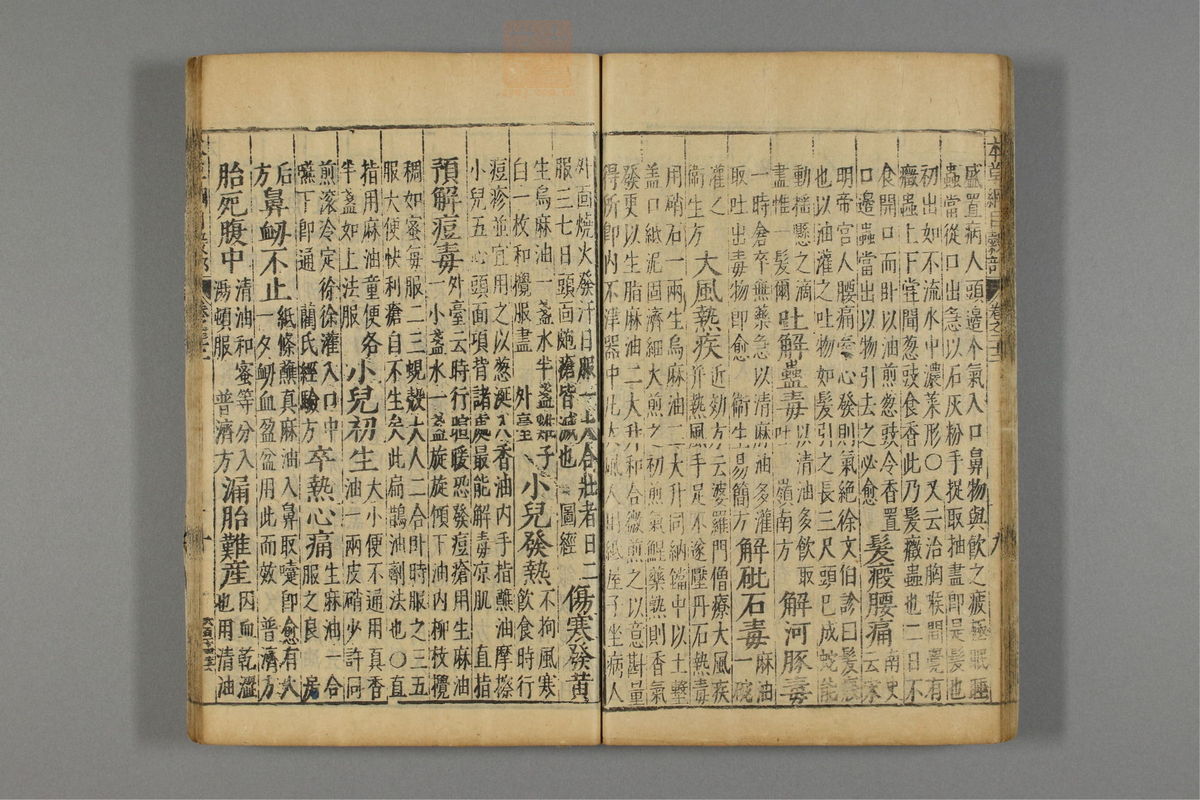 本草綱目穀部 卷之二十二 九
盛置病人頭邊令氣入口鼻物與飲之疲極眠睡
蟲當從口出急以石灰粉手捉取抽盡即是髮也
初出如不流水中濃菜形〇又云治胸喉間覺有
癥蟲上下嘗聞葱豉食香此乃髮癥蟲也二日不
食開口而卧以油煎葱豉令香置
口邊蟲當出以物引去之必愈 髮瘕腰痛 南史
云宋
明帝宮人腰痛牽心發則氣絶徐文伯診曰髮瘕
也以油灌之吐物如髮引之長三尺頭已成蛇能
動搖懸之滴
盡惟一髮爾 吐解蠱毒 以清油多飲取
吐 嶺南方 解河豚毒
一時倉卒無藥急以清麻油多灌
取吐出毒物即愈 衛生易簡方 解砒石毒 麻油
一碗
灌之
衛生方 大風熱疾 近効方云婆羅門僧療大風疾
并熱風手足不遂壓丹石熱毒
用硝石一兩生烏麻油二大升同納鐺中以土墼
蓋口紙泥固濟細火煎之初煎氣腥藥熟則香氣
發更以生脂麻油二大升和合微煎之以意斟量
得所即內不津器中凡大風人用紙屋子坐病人
外面燒火發汗日服一大合壯者日二
服三七日頭面皰瘡皆滅也 圖經 傷寒發黃
生烏麻油一盞水半盞雞子
白一枚和攪服盡 外臺 小兒發熱 不拘風寒
飲食時行
痘疹並宜用之以葱涎入香油內手指蘸油摩擦
小兒五心頭面項背諸處最能解毒凉肌 直指
預解痘毒 外臺云時行暄暖恐發痘瘡用生麻油
一小盞水一盞旋旋傾下油內柳枝攪
稠如蜜每服二三蜆殼大人二合卧時服之三五
服大便快利瘡自不生矣此扁鵲油劑法也〇直
指用麻油童便各
半盞如上法服 小兒初生 大小便不通用真香
油一兩皮硝少許同
煎滾冷定徐徐灌入口中
嚥下即通 藺氏經驗方 卒熱心痛 生麻油一合
服之良 肘
后
方 鼻衄不止 紙條蘸真麻油入鼻取嚏即愈有人
一夕衄血盈盆用此而效 普濟方
胎死腹中 清油和蜜等分入
湯頓服 普濟方 漏胎難產 因血乾澀
也用清油